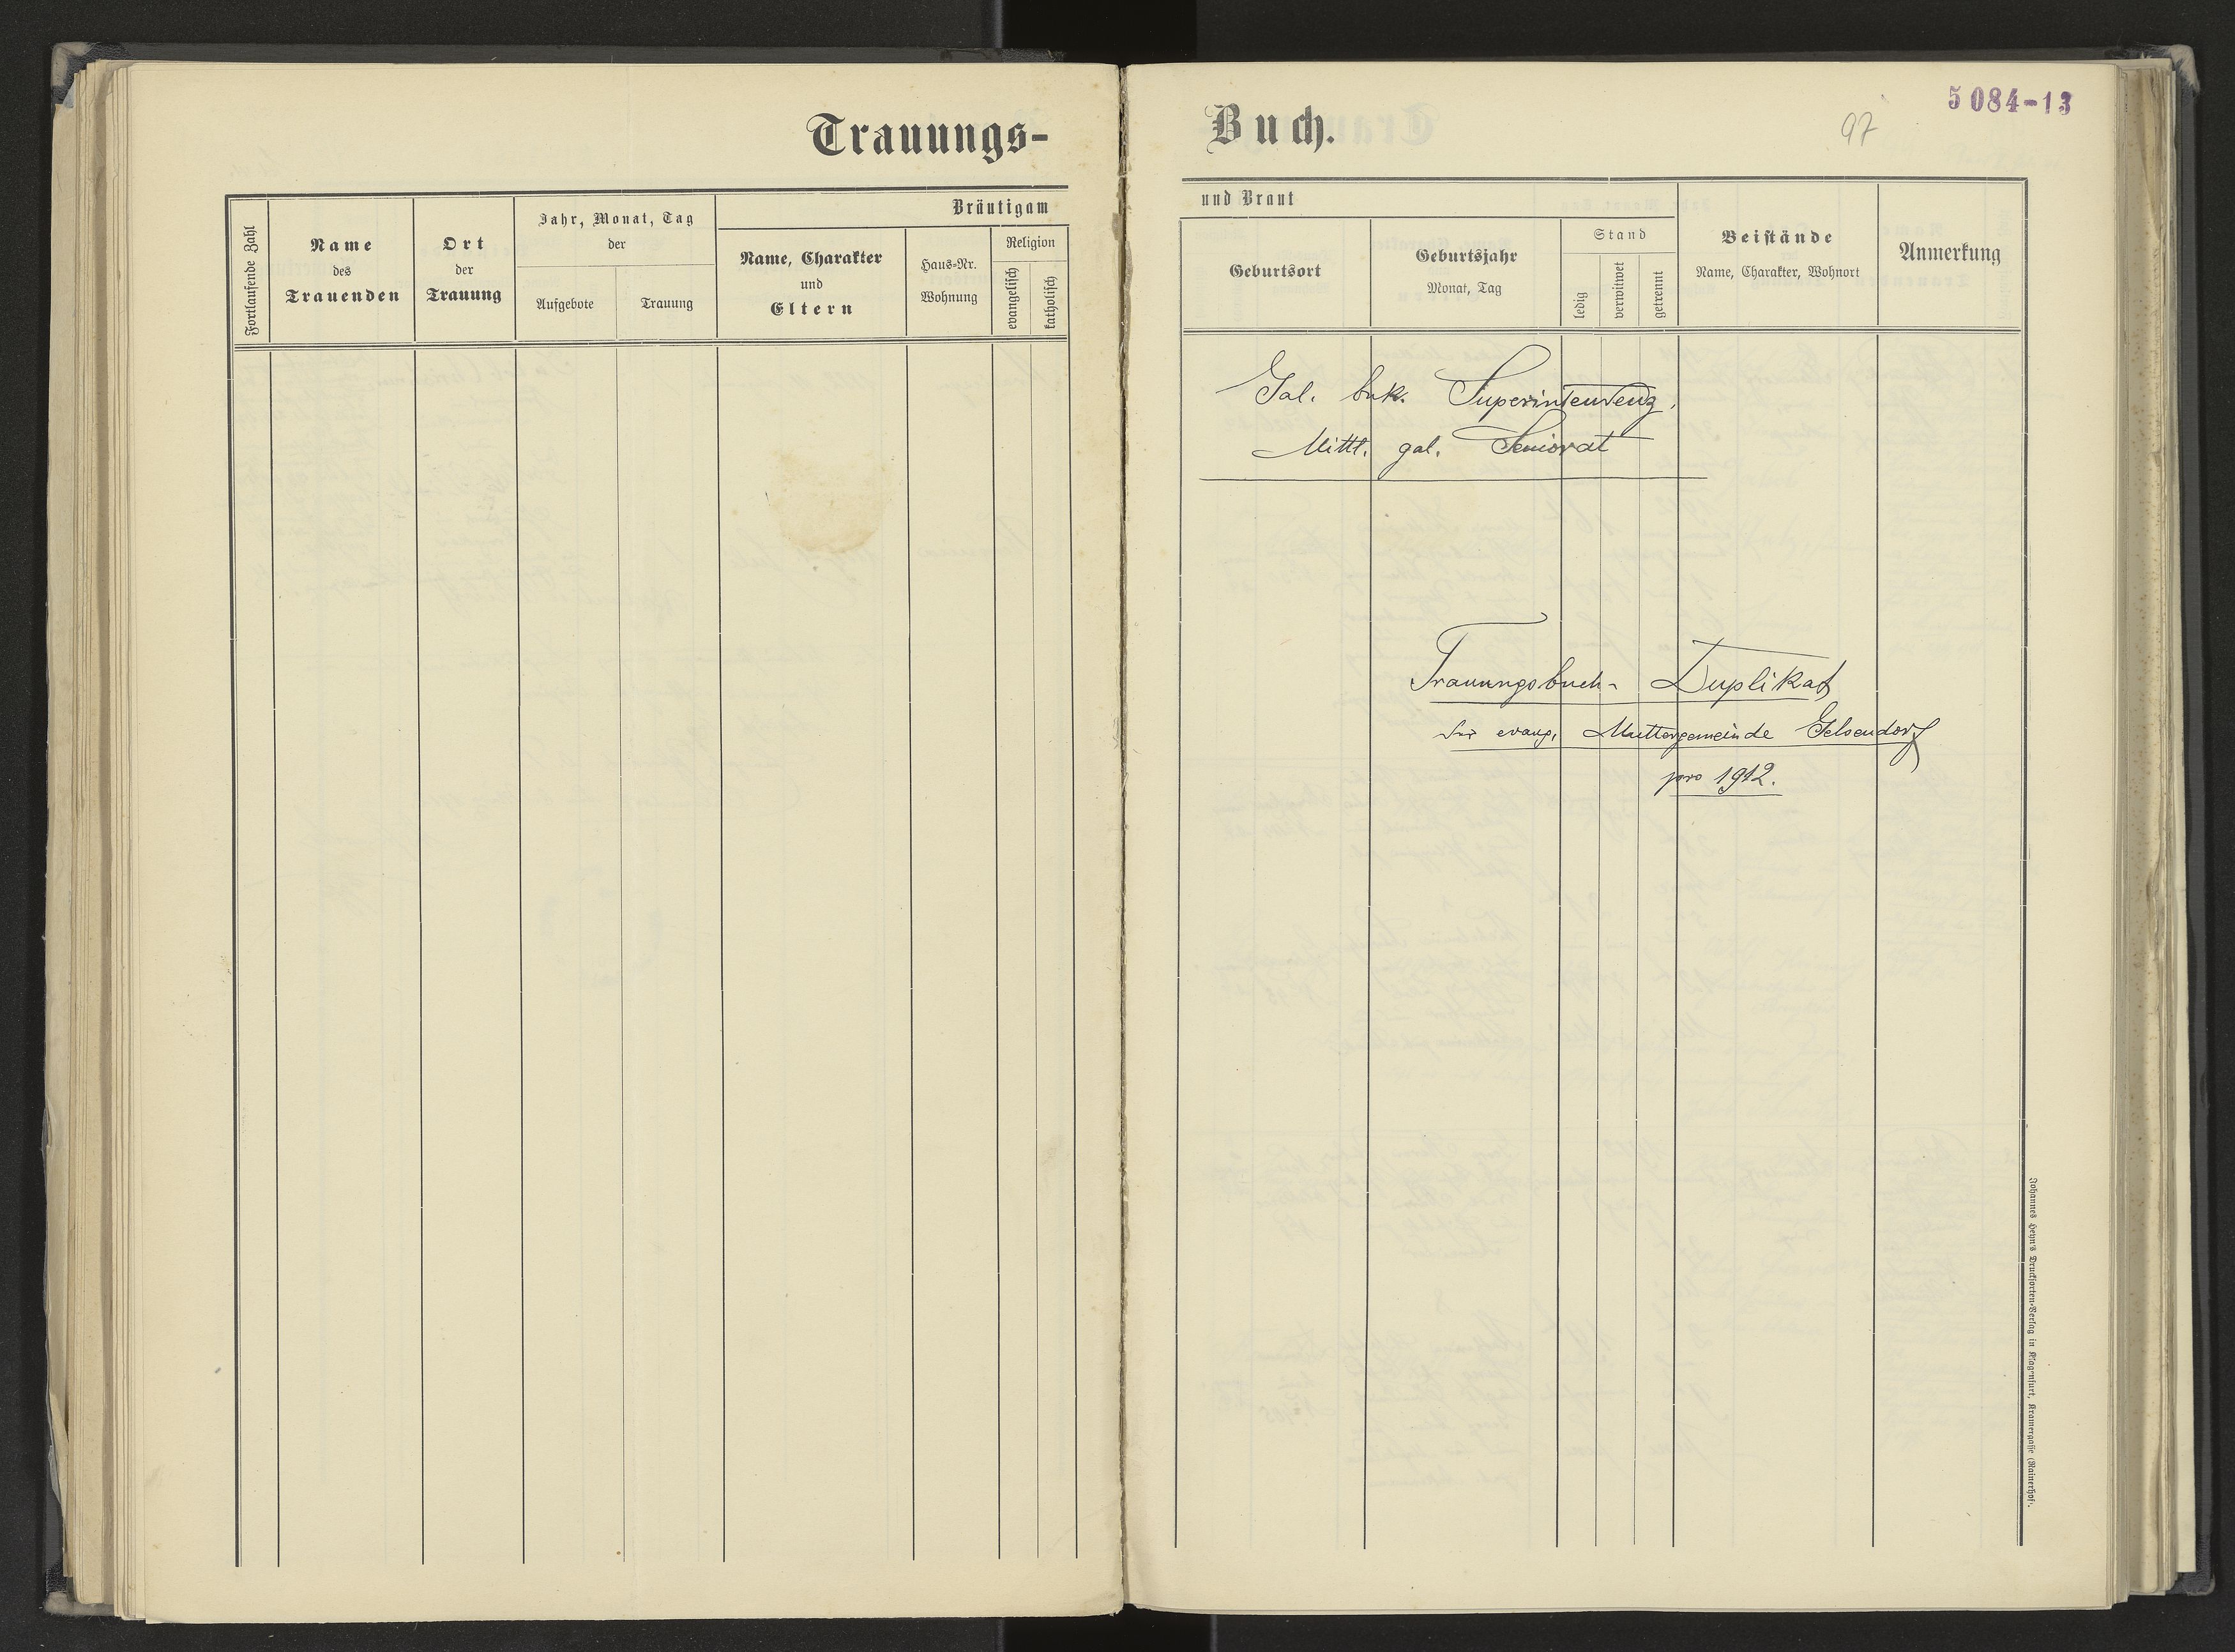 Trauungs-
Fortlaufende Zahl
Name
des
Trauenden
Ort
der
Trauung
Jahr, Monat, Tag
der
Aufgebote
Trauung
Bräutigam
Name, Charakter
und
Eltern
Haus-Nr.
Wohnung
Religion
evangelisch
katholisch
5 084-13
97
Buch.
und Braut
Geburtsort
Geburtsjahr
Monat, Tag
Stand
ledig
verwitwet
getrennt
Beistände
Name, Charakter, Wohnort
Anmerkung
Gal. buk. Superintendenz.
Mittl. gal. Seniorat
Trauungsbuch- Duplikat
evang. Muttergemeinde Gelsendorf
pro 1912.
Johannes Heyn's Drucksorten-Verlag in Klagenfurt, Kramergasse (Rainerhof).